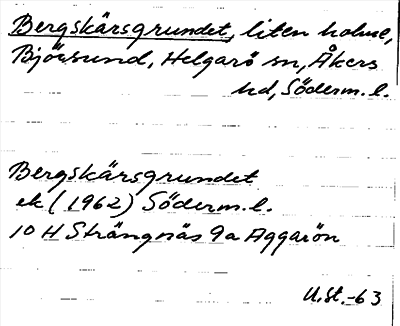 Bergskärsgrundet, liten holme,
Björsund, Helgarö sn, Åkers
hd, Söderm. l.
Bergskärsgrundet
ek (1962) Söderm. l.
10 H Strängnäs 9a Aggarön
U.St.-63